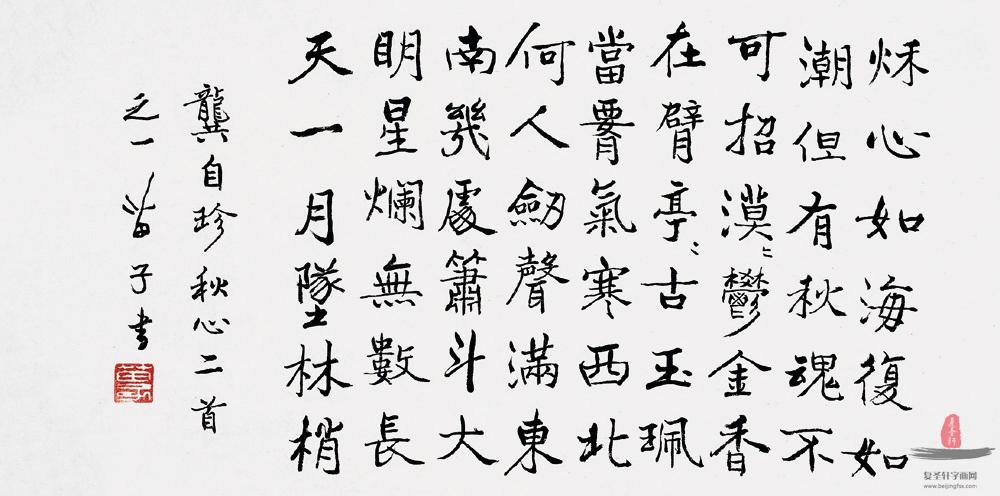 秌心如海復如
潮但有秋魂不
可招漠〻鬱金香
在臂亭〻古玉珮
當腰氣寒西北
何人劔聲滿東
南幾處簫斗大
明星爛無數長
天一月墜林梢
龔自珍秋心二首
之一苗子书
复圣轩字画网
www.beijingfsx.com